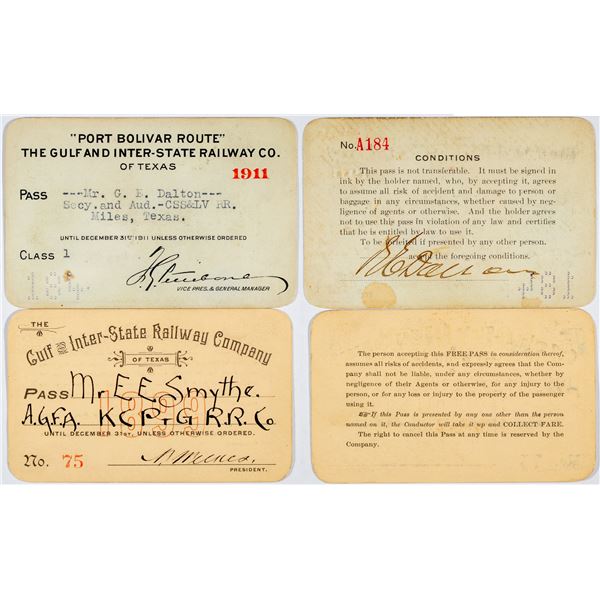 "PORT BOLIVAR ROUTE"
THE GULF AND INTER-STATE RAILWAY CO.
OF TEXAS
1911
PASS ---Mr. G. E. Dalton---
Secy. and Aud.-CSS&LV RR.
Miles, Texas.
UNTIL DECEMBER 31ST 1911 UNLESS OTHERWISE ORDERED
CLASS 1
VICE PRES. & GENERAL MANAGER
No. A184
CONDITIONS
This pass is not transferable. It must be signed in
ink by the holder named, who, by accepting it, agrees
to assume all risk of accident and damage to person or
baggage in any circumstances, whether caused by neg-
ligence of agents or otherwise. And the holder agrees
not to use this pass in violation of any law and certifies
that he is entitled by law to use it.
To be forfeited if presented by any other person.
accept the foregoing conditions.
G E Dalton
THE
Gulf AND Inter-State Railway Company
OF TEXAS
1899
PASS Mr E.E. Smythe.
A.G.F.A. K.C.P.&G R.R. Co
UNTIL DECEMBER 31ST, UNLESS OTHERWISE ORDERED
No. 75
PRESIDENT.
The person accepting this FREE PASS in consideration thereof,
assumes all risks of accidents, and expressly agrees that the Com-
pany shall not be liable, under any circumstances, whether by
negligence of their Agents or otherwise, for any injury to the
person, or for any loss or injury to the property of the passenger
using it.
☞If this Pass is presented by any one other than the person
named on it, the Conductor will take it up and COLLECT FARE.
The right to cancel this Pass at any time is reserved by the
Company.